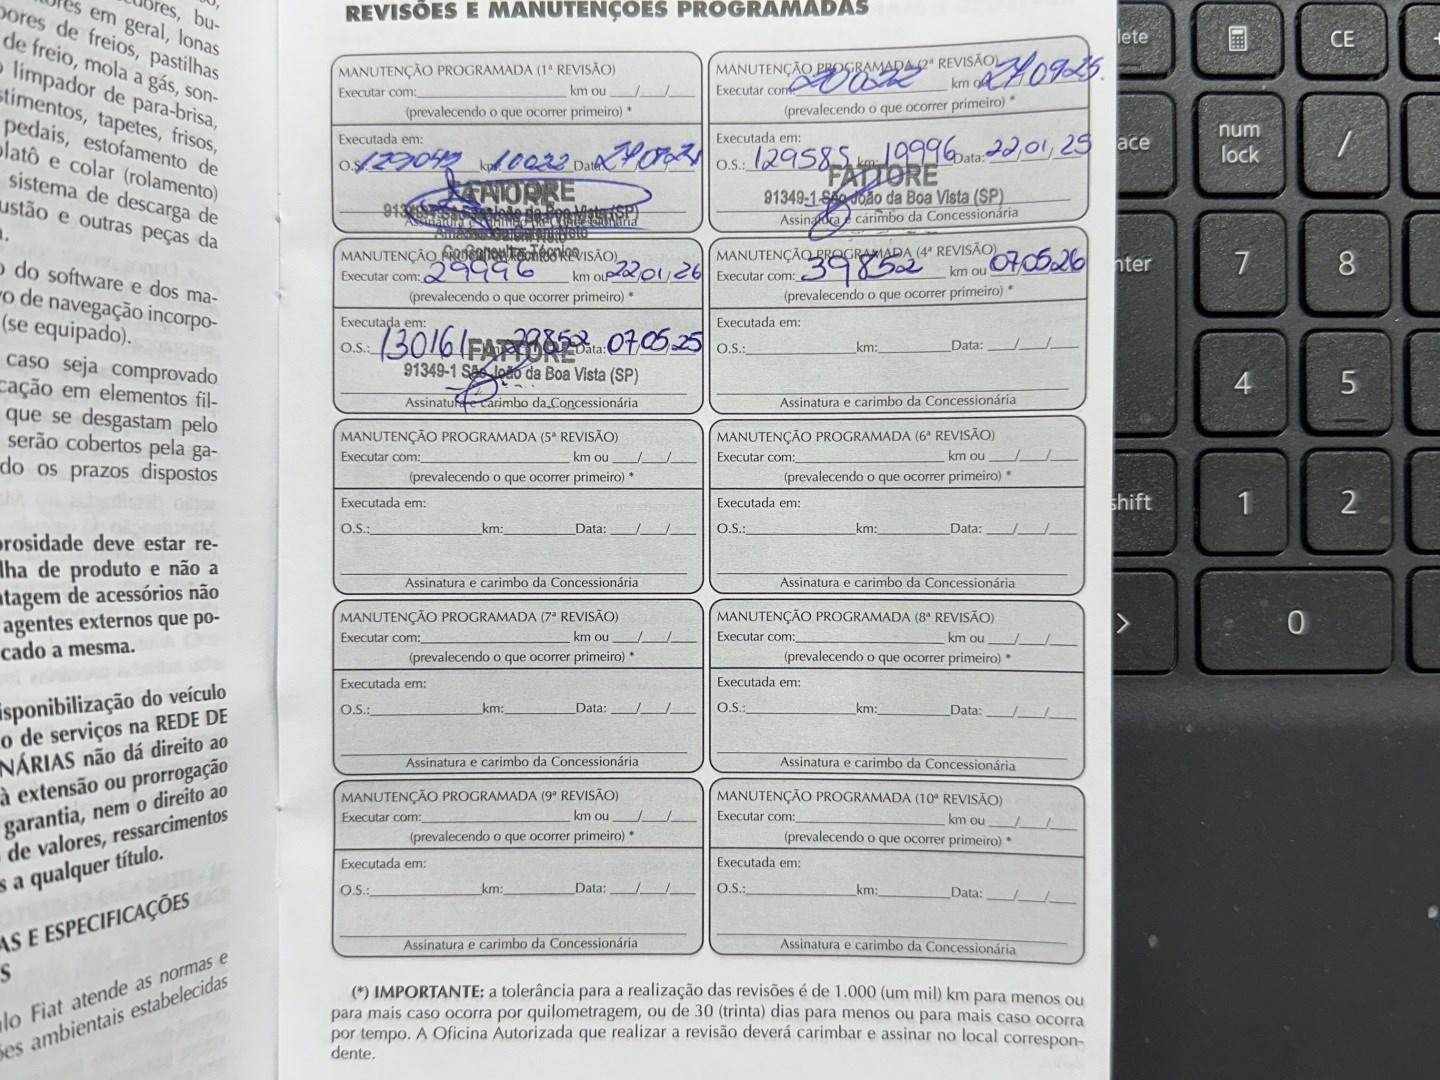 ores em geral, lonas
ores de freios, pastilhas
de freio, mola a gás, son-
limpador de para-brisa,
stimentos, tapetes, frisos,
pedais, estofamento de
platô e colar (rolamento)
sistema de descarga de
ustão e outras peças da
do software e dos ma-
vo de navegação incorpo-
(se equipado).
caso seja comprovado
cação em elementos fil-
que se desgastam pelo
serão cobertos pela ga-
do os prazos dispostos
prosidade deve estar re-
lha de produto e não a
ntagem de acessórios não
agentes externos que po-
cado a mesma.
isponibilização do veículo
o de serviços na REDE DE
NÁRIAS não dá direito ao
à extensão ou prorrogação
garantia, nem o direito ao
de valores, ressarcimentos
s a qualquer título.
AS E ESPECIFICAÇÕES
S
ulo Fiat atende as normas e
ões ambientais estabelecidas
REVISÕES E MANUTENÇÕES PROGRAMADAS
MANUTENÇÃO PROGRAMADA (1ª REVISÃO)
Executar com: km ou / /
(prevalecendo o que ocorrer primeiro) *
Executada em:
O.S.: km: 10022 Data:
FATTORE
São João da Boa Vista (SP)
Consultor Técnico
MANUTENÇÃO PROGRAMADA (2ª REVISÃO)
Executar com: 20022 km ou
(prevalecendo o que ocorrer primeiro) *
Executada em:
O.S.: 129585 km: 19996 Data: 22/01/25
FATTORE
91349-1 São João da Boa Vista (SP)
Assinatura e carimbo da Concessionária
MANUTENÇÃO PROGRAMADA REVISÃO)
Executar com: 29996 km ou 22/01/26
(prevalecendo o que ocorrer primeiro) *
Executada em:
O.S.: 130161 29852 Data: 07.05.25
FATTORE
91349-1 São João da Boa Vista (SP)
Assinatura e carimbo da Concessionária
MANUTENÇÃO PROGRAMADA (4ª REVISÃO)
Executar com: 39852 km ou 07.05.26
(prevalecendo o que ocorrer primeiro) *
Executada em:
O.S.: km: Data: / /
Assinatura e carimbo da Concessionária
MANUTENÇÃO PROGRAMADA (5ª REVISÃO)
Executar com: km ou / /
(prevalecendo o que ocorrer primeiro) *
Executada em:
O.S.: km: Data: / /
Assinatura e carimbo da Concessionária
MANUTENÇÃO PROGRAMADA (6ª REVISÃO)
Executar com: km ou / /
(prevalecendo o que ocorrer primeiro) *
Executada em:
O.S.: km: Data: / /
Assinatura e carimbo da Concessionária
MANUTENÇÃO PROGRAMADA (7ª REVISÃO)
Executar com: km ou / /
(prevalecendo o que ocorrer primeiro) *
Executada em:
O.S.: km: Data: / /
Assinatura e carimbo da Concessionária
MANUTENÇÃO PROGRAMADA (8ª REVISÃO)
Executar com: km ou / /
(prevalecendo o que ocorrer primeiro) *
Executada em:
O.S.: km: Data: / /
Assinatura e carimbo da Concessionária
MANUTENÇÃO PROGRAMADA (9ª REVISÃO)
Executar com: km ou / /
(prevalecendo o que ocorrer primeiro) *
Executada em:
O.S.: km: Data: / /
Assinatura e carimbo da Concessionária
MANUTENÇÃO PROGRAMADA (10ª REVISÃO)
Executar com: km ou / /
(prevalecendo o que ocorrer primeiro) *
Executada em:
O.S.: km: Data: / /
Assinatura e carimbo da Concessionária
(*) IMPORTANTE: a tolerância para a realização das revisões é de 1.000 (um mil) km para menos ou
para mais caso ocorra por quilometragem, ou de 30 (trinta) dias para menos ou para mais caso ocorra
por tempo. A Oficina Autorizada que realizar a revisão deverá carimbar e assinar no local correspon-
dente.
lete CE +
ace num lock /
nter 7 8
4 5
shift 1 2
> 0